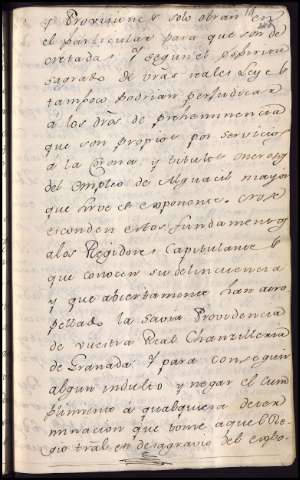 y Provisiones solo obran en
el particular para que son de
cretadas; Y segun el espiritu
sagrado de vras reales Leyes
tampoco podrian perjudicar
á los dros de preheminencia
que son propios por servicios
á la Corona, y titulo oneroso
del empleo de Alguacil mayor
que sirve el exponente. No se
esconden estos fundamentos
a los Regidores Capitulares
que conocen su delincuencia
y que abiertamente han atro
pellado la savia Providencia
de vuestra Real Chanzilleria
de Granada; Y para conseguir
algun indulto y negar el cum
plimiento á qualquiera deter
minacion que tome aquel Re
gio tral en desagravio del expte.